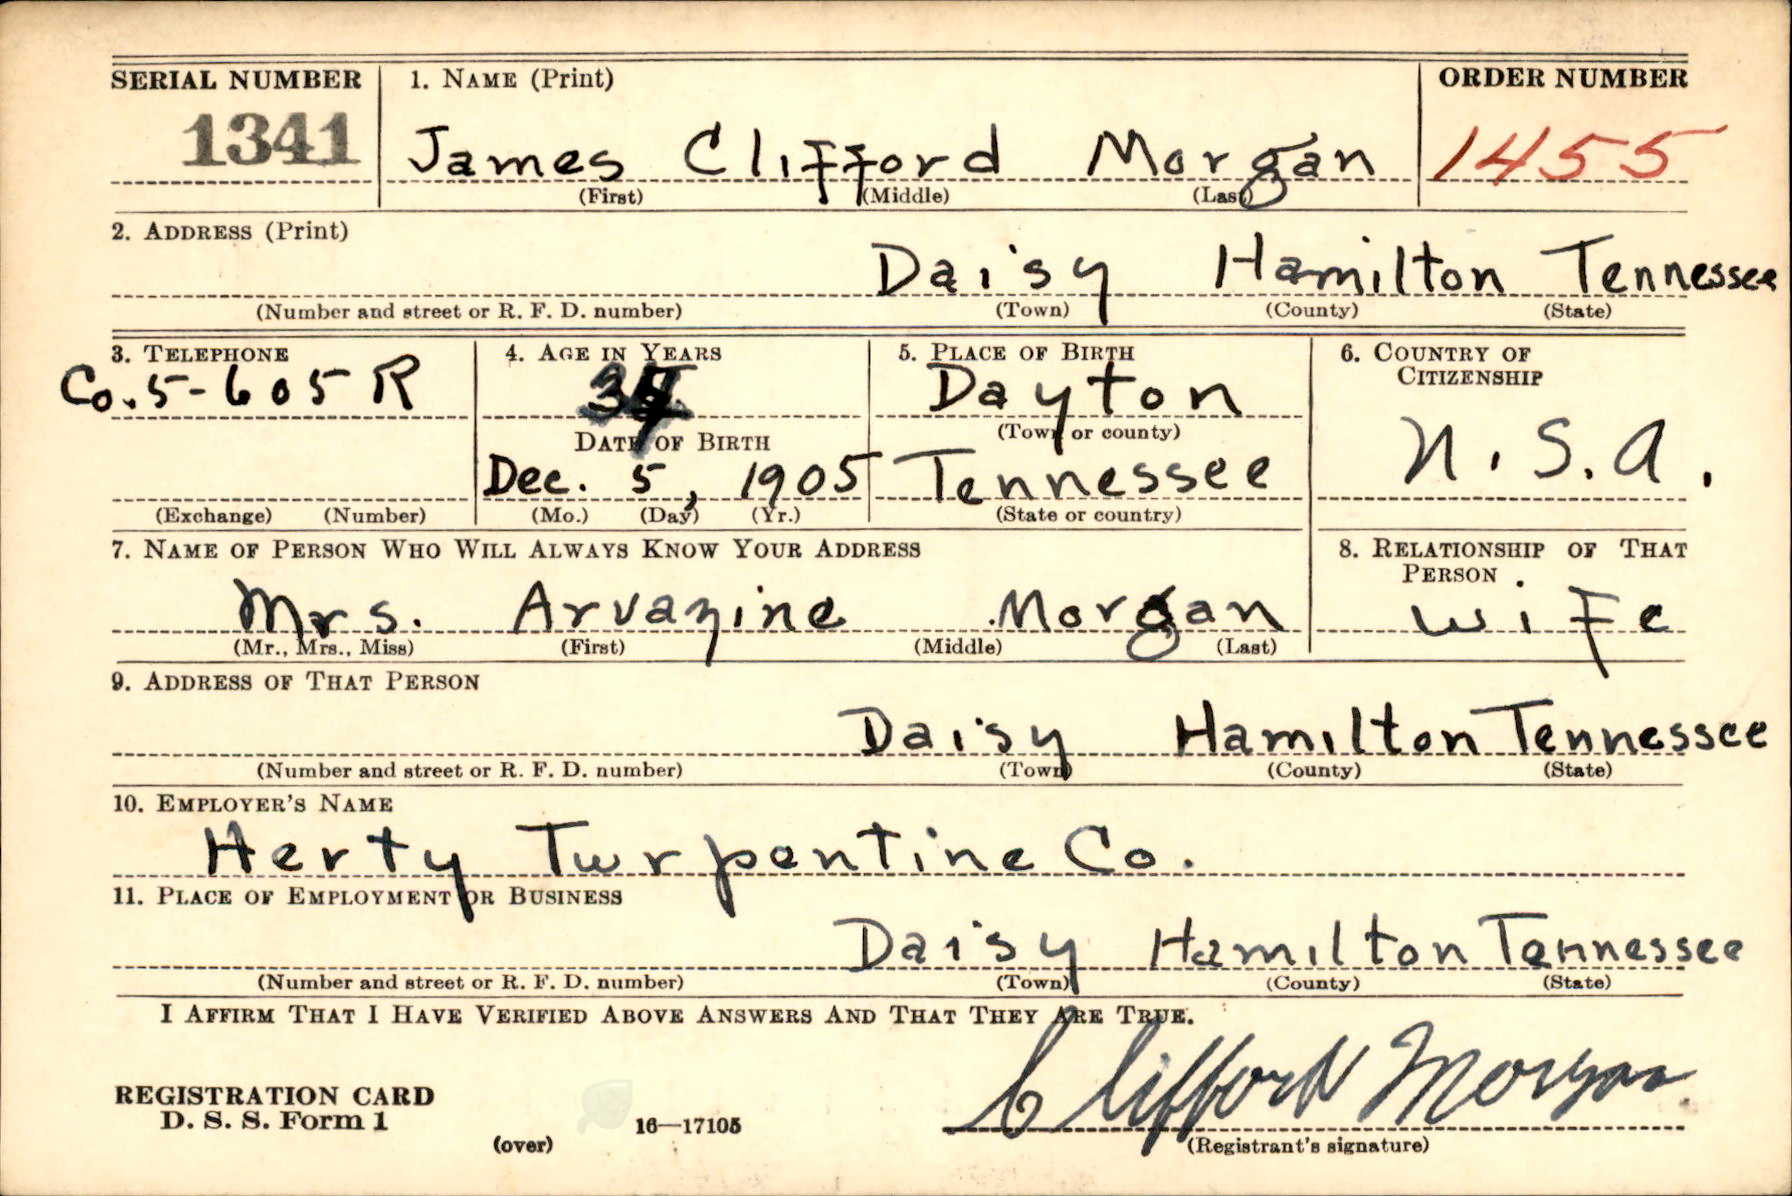 SERIAL NUMBER 1. NAME (Print) ORDER NUMBER
1341 James Clifford Morgan 1455
(First) (Middle) (Last)
2. ADDRESS (Print)
Daisy Hamilton Tennessee
(Number and street or R. F. D. number) (Town) (County) (State)
3. TELEPHONE 4. AGE IN YEARS 5. PLACE OF BIRTH 6. COUNTRY OF CITIZENSHIP
Co. 5-605 R Dayton
DATE OF BIRTH (Town or county)
Dec. 5, 1905 Tennessee U.S.A.
(Exchange) (Number) (Mo.) (Day) (Yr.) (State or country)
7. NAME OF PERSON WHO WILL ALWAYS KNOW YOUR ADDRESS 8. RELATIONSHIP OF THAT PERSON
Mrs. Arvazine Morgan wife
(Mr., Mrs., Miss) (First) (Middle) (Last)
9. ADDRESS OF THAT PERSON
Daisy Hamilton Tennessee
(Number and street or R. F. D. number) (Town) (County) (State)
10. EMPLOYER'S NAME
Herty Turpentine Co.
11. PLACE OF EMPLOYMENT OR BUSINESS
Daisy Hamilton Tennessee
(Number and street or R. F. D. number) (Town) (County) (State)
I AFFIRM THAT I HAVE VERIFIED ABOVE ANSWERS AND THAT THEY ARE TRUE.
Clifford Morgan
REGISTRATION CARD
D. S. S. Form 1 16—17105
(over) (Registrant's signature)